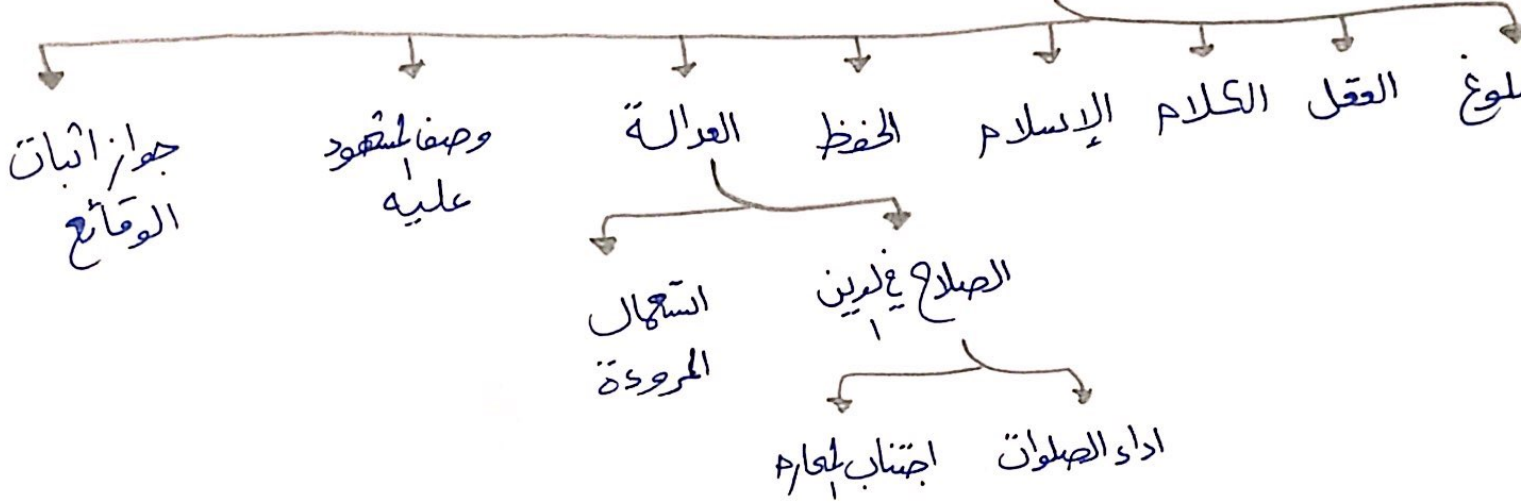 لوغ
العقل
الكلام
الإسلام
الحفظ
العدالة
وصف المشهود
عليه
جواز اثبات
الوقائع
الصلاح في الدين
استعمال
المروءة
اداء الصلوات
اجتناب المحارم